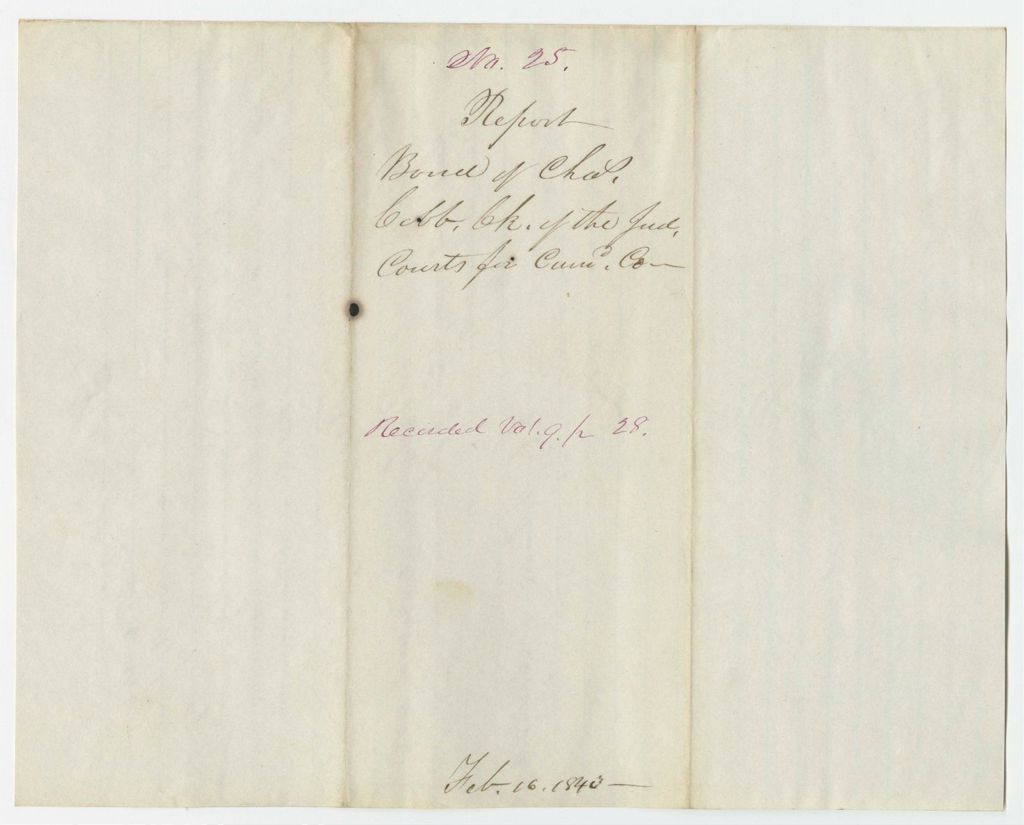 No. 25.
Report
Bond of Chas.
Cobb, Ck. of the Jud.
Courts for Cumd. Co—
Recorded Vol. 9. p 28.
Feb. 16. 1843—